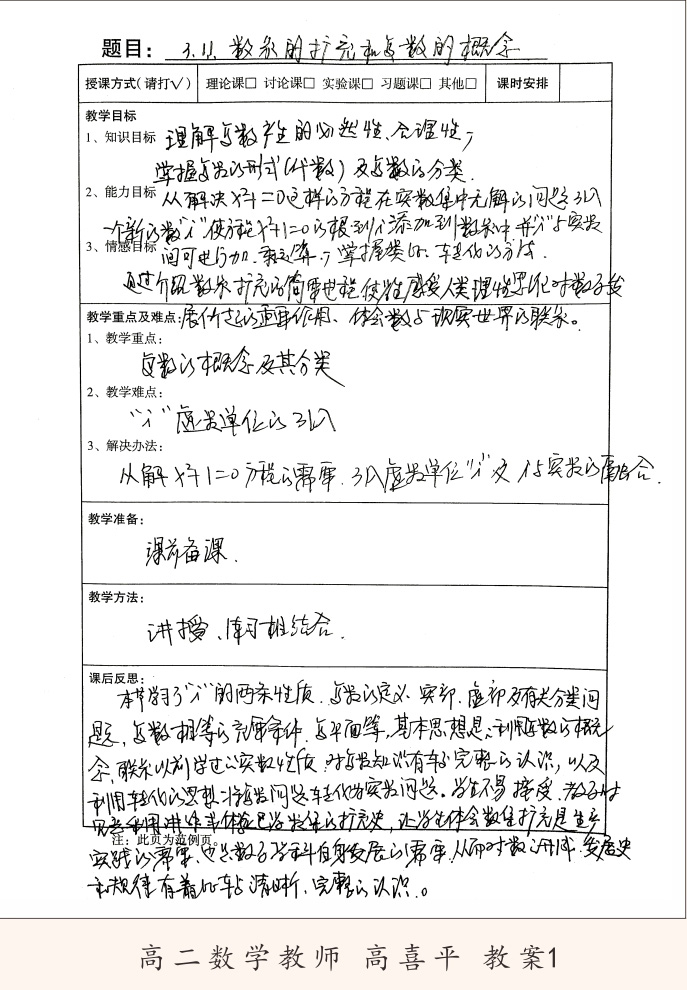 题目: 3.1.1 数系的扩充和复数的概念
授课方式(请打√) 理论课□ 讨论课□ 实验课□ 习题课□ 其他□ 课时安排
教学目标
1、知识目标 理解复数产生的必然性、合理性,
掌握复数的形式(代数)及复数的分类.
2、能力目标 从解决x²+1=0这样的方程在实数集中无解的问题引入
一个新的数"i"使方程x²+1=0的根到i添加到数集中并"i"与实数
3、情感目标 间可进行加、乘运算,掌握类比、转化的方法.
通过介绍数系扩充的简要过程使性感受人类理性思维对数学发
教学重点及难点: 展所起的重要作用、体会数与现实世界的联系。
1、教学重点:
复数的概念及其分类
2、教学难点:
"i"虚数单位的引入
3、解决办法:
从解x²+1=0方程的需要.引入虚数单位"i" 与实数的融合.
教学准备:
课前备课.
教学方法:
讲授、练习相结合.
课后反思:
本节学习了"i"的两条性质.复数的定义.实部.虚部及有关分类问
题,复数相等的充要条件.复平面等,基本思想是:利用复数的概
念,联系以前学过的实数性质.对复数知识有较完整的认识,以及
利用转化的思想将复数问题转化为实数问题。学生不易接受.
数集的扩充史,让学生体会数集扩充是生产
注: 此页为范例页。
实践的需要.也是数学学科自身发展的需要.从而对数的形成、发展史
和规律有着比较清晰、完整的认识。
高二数学教师 高喜平 教案1